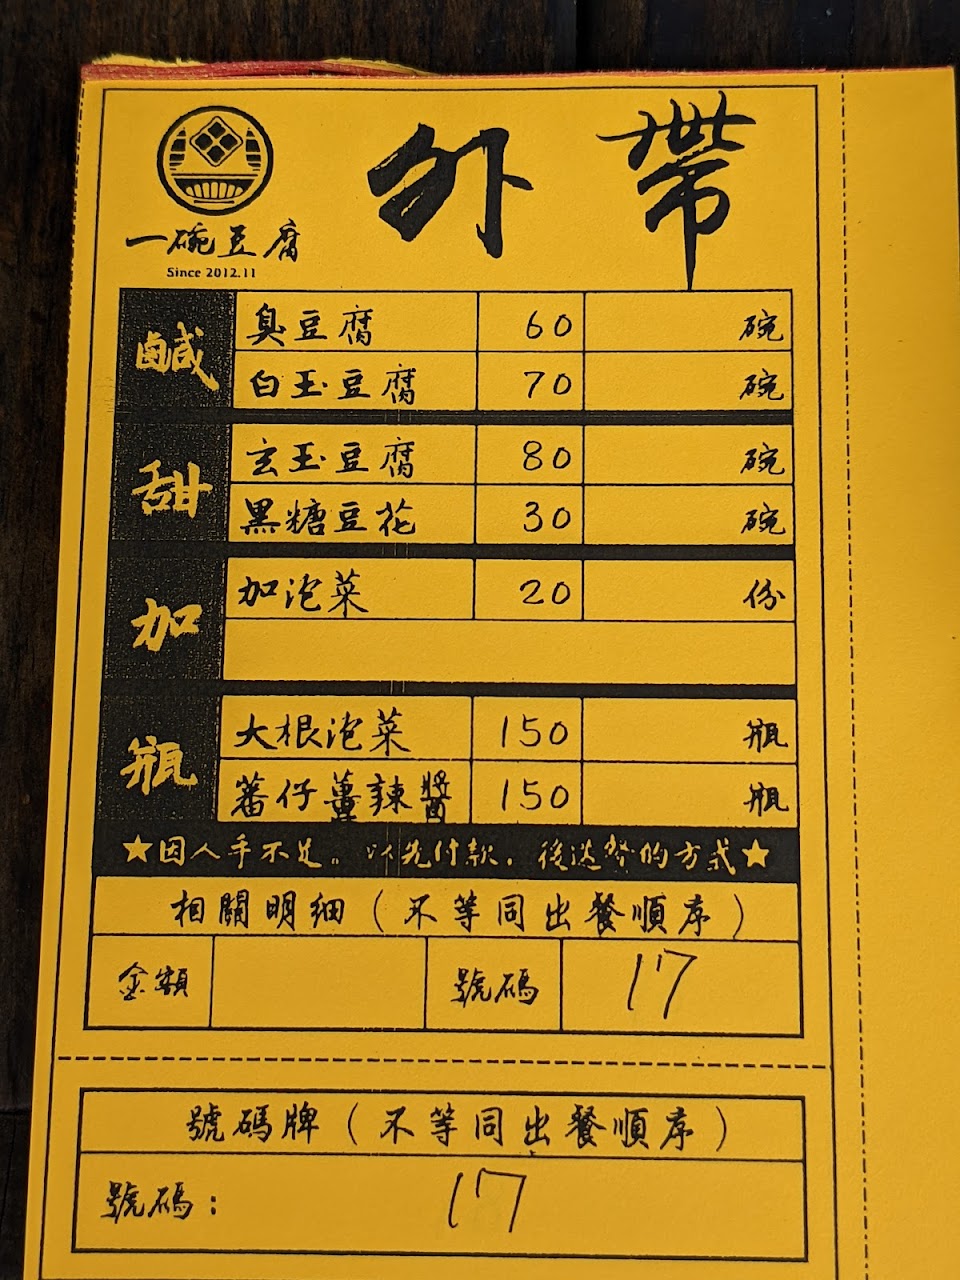 外帶
一碗豆腐
Since 2012.11
鹹
臭豆腐 60 碗
白玉豆腐 70 碗
甜
玄玉豆腐 80 碗
黑糖豆花 30 碗
加
加泡菜 20 份
瓶
大根泡菜 150 瓶
蕃仔薑辣醬 150 瓶
★因人手不足。以先付款，後送餐的方式★
相關明細(不等同出餐順序)
金額 號碼 17
號碼牌(不等同出餐順序)
號碼: 17